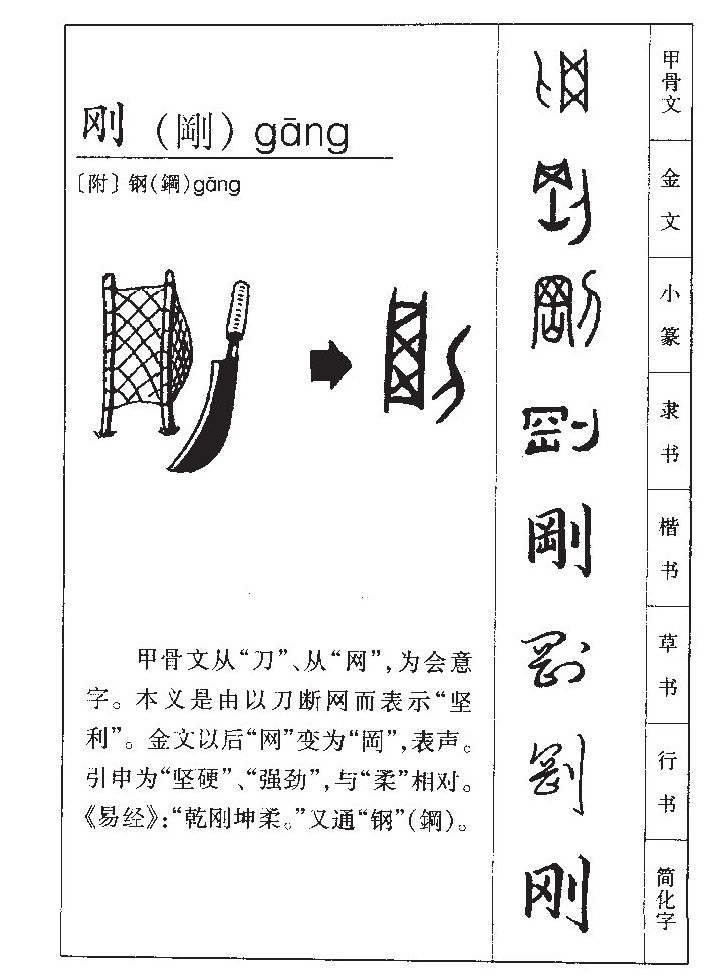 刚（剛）gāng
〔附〕钢(鋼)gāng
甲骨文从“刀”、从“网”，为会意
字。本义是由以刀断网而表示“坚
利”。金文以后“网”变为“岡”，表声。
引申为“坚硬”、“强劲”，与“柔”相对。
《易经》：“乾刚坤柔。”又通“钢”(鋼)。
甲骨文
金文
小篆
隶书
剛
楷书
剛
草书
行书
刚
简化字